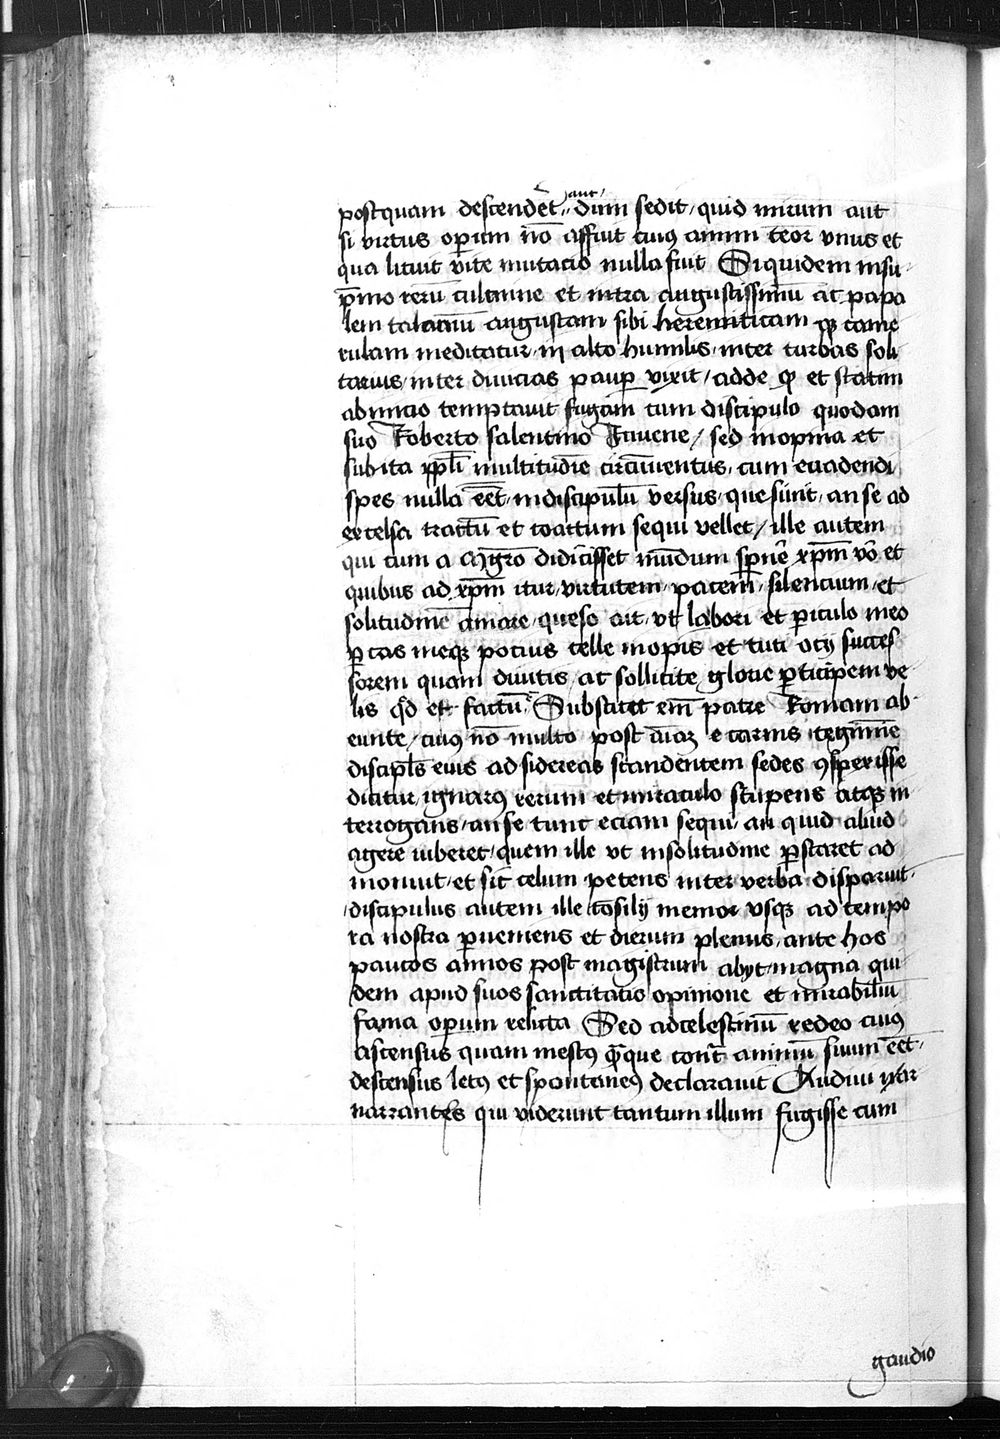 postquam descendēt aut dum sedit, quid mirum aut
si virtus operum nō affuit cuiꝰ animi teōr vnus et
qua licuit vite mutacio nulla fuit Siquidem insu-
p̄mo rerū culmine et intra augustissimū ac papa
lem talamū angustam sibi heremiticam ꝙꝫ came
rulam meditatur, in alto humilis, inter turbas soli
tarius, inter diuicias paup̱ vixit, adde ꝙ et statim
ab inicio temptauit fugam cum discipulo quodam
suo Roberto salentino Iuuene, sed inopina et
subita ppl̄i multitudīe circūuentus, cum euadendi
spes nulla eēt, indiscipulū versus, quesiuit, an se ad
excelsa tractū et coactum sequi vellet, ille autem
qui cum a mḡro didicisset mūdum sp̱nē̄ xp̄m vō et
quibus ad xp̄m itur, virtutem, pacem, silencium, et
solitudinē amare, queso ait, vt labori et p̱iculo meo
p̱cas meqꝫ potius celle inopis et tuti ocij succes
sorem quam diuitis, ac sollicite glorie p̱ticipem ve
lis qd̄ et factū Substitit em̄ patre Romam ab-
eunte, cuiꝰ nō multo post aīaꝫ e carnis tegmine
discipl̄s eius ad sidereas scandentem sedes ꝯspexisse
dicitur, ignarꝰ rerum et miraculo stupens atqꝫ in
terrogans, an se tunc eciam sequi, an quid aliud
agere iuberet, quem ille vt insolitudine p̱staret ad
monuit, et sic celum petens inter verba disparuit,
discipulus autem ille cōsilij memor vsqꝫ ad tempo
ra nostra p̱ueniens et dierum plenus, ante hos
paucos annos post magistrum abyt, magna qui
dem apud suos sanctitatis opinione et mirabiliū
fama operum relicta Sed adcelestinū redeo cuiꝰ
ascensus quam mestꝰ q̄que cont̄ animū suum eēt,
descensus letꝰ et spontaneꝰ declarauit Audiui nar
narrantes qui viderunt tantum illum fugisse cum
gaudio